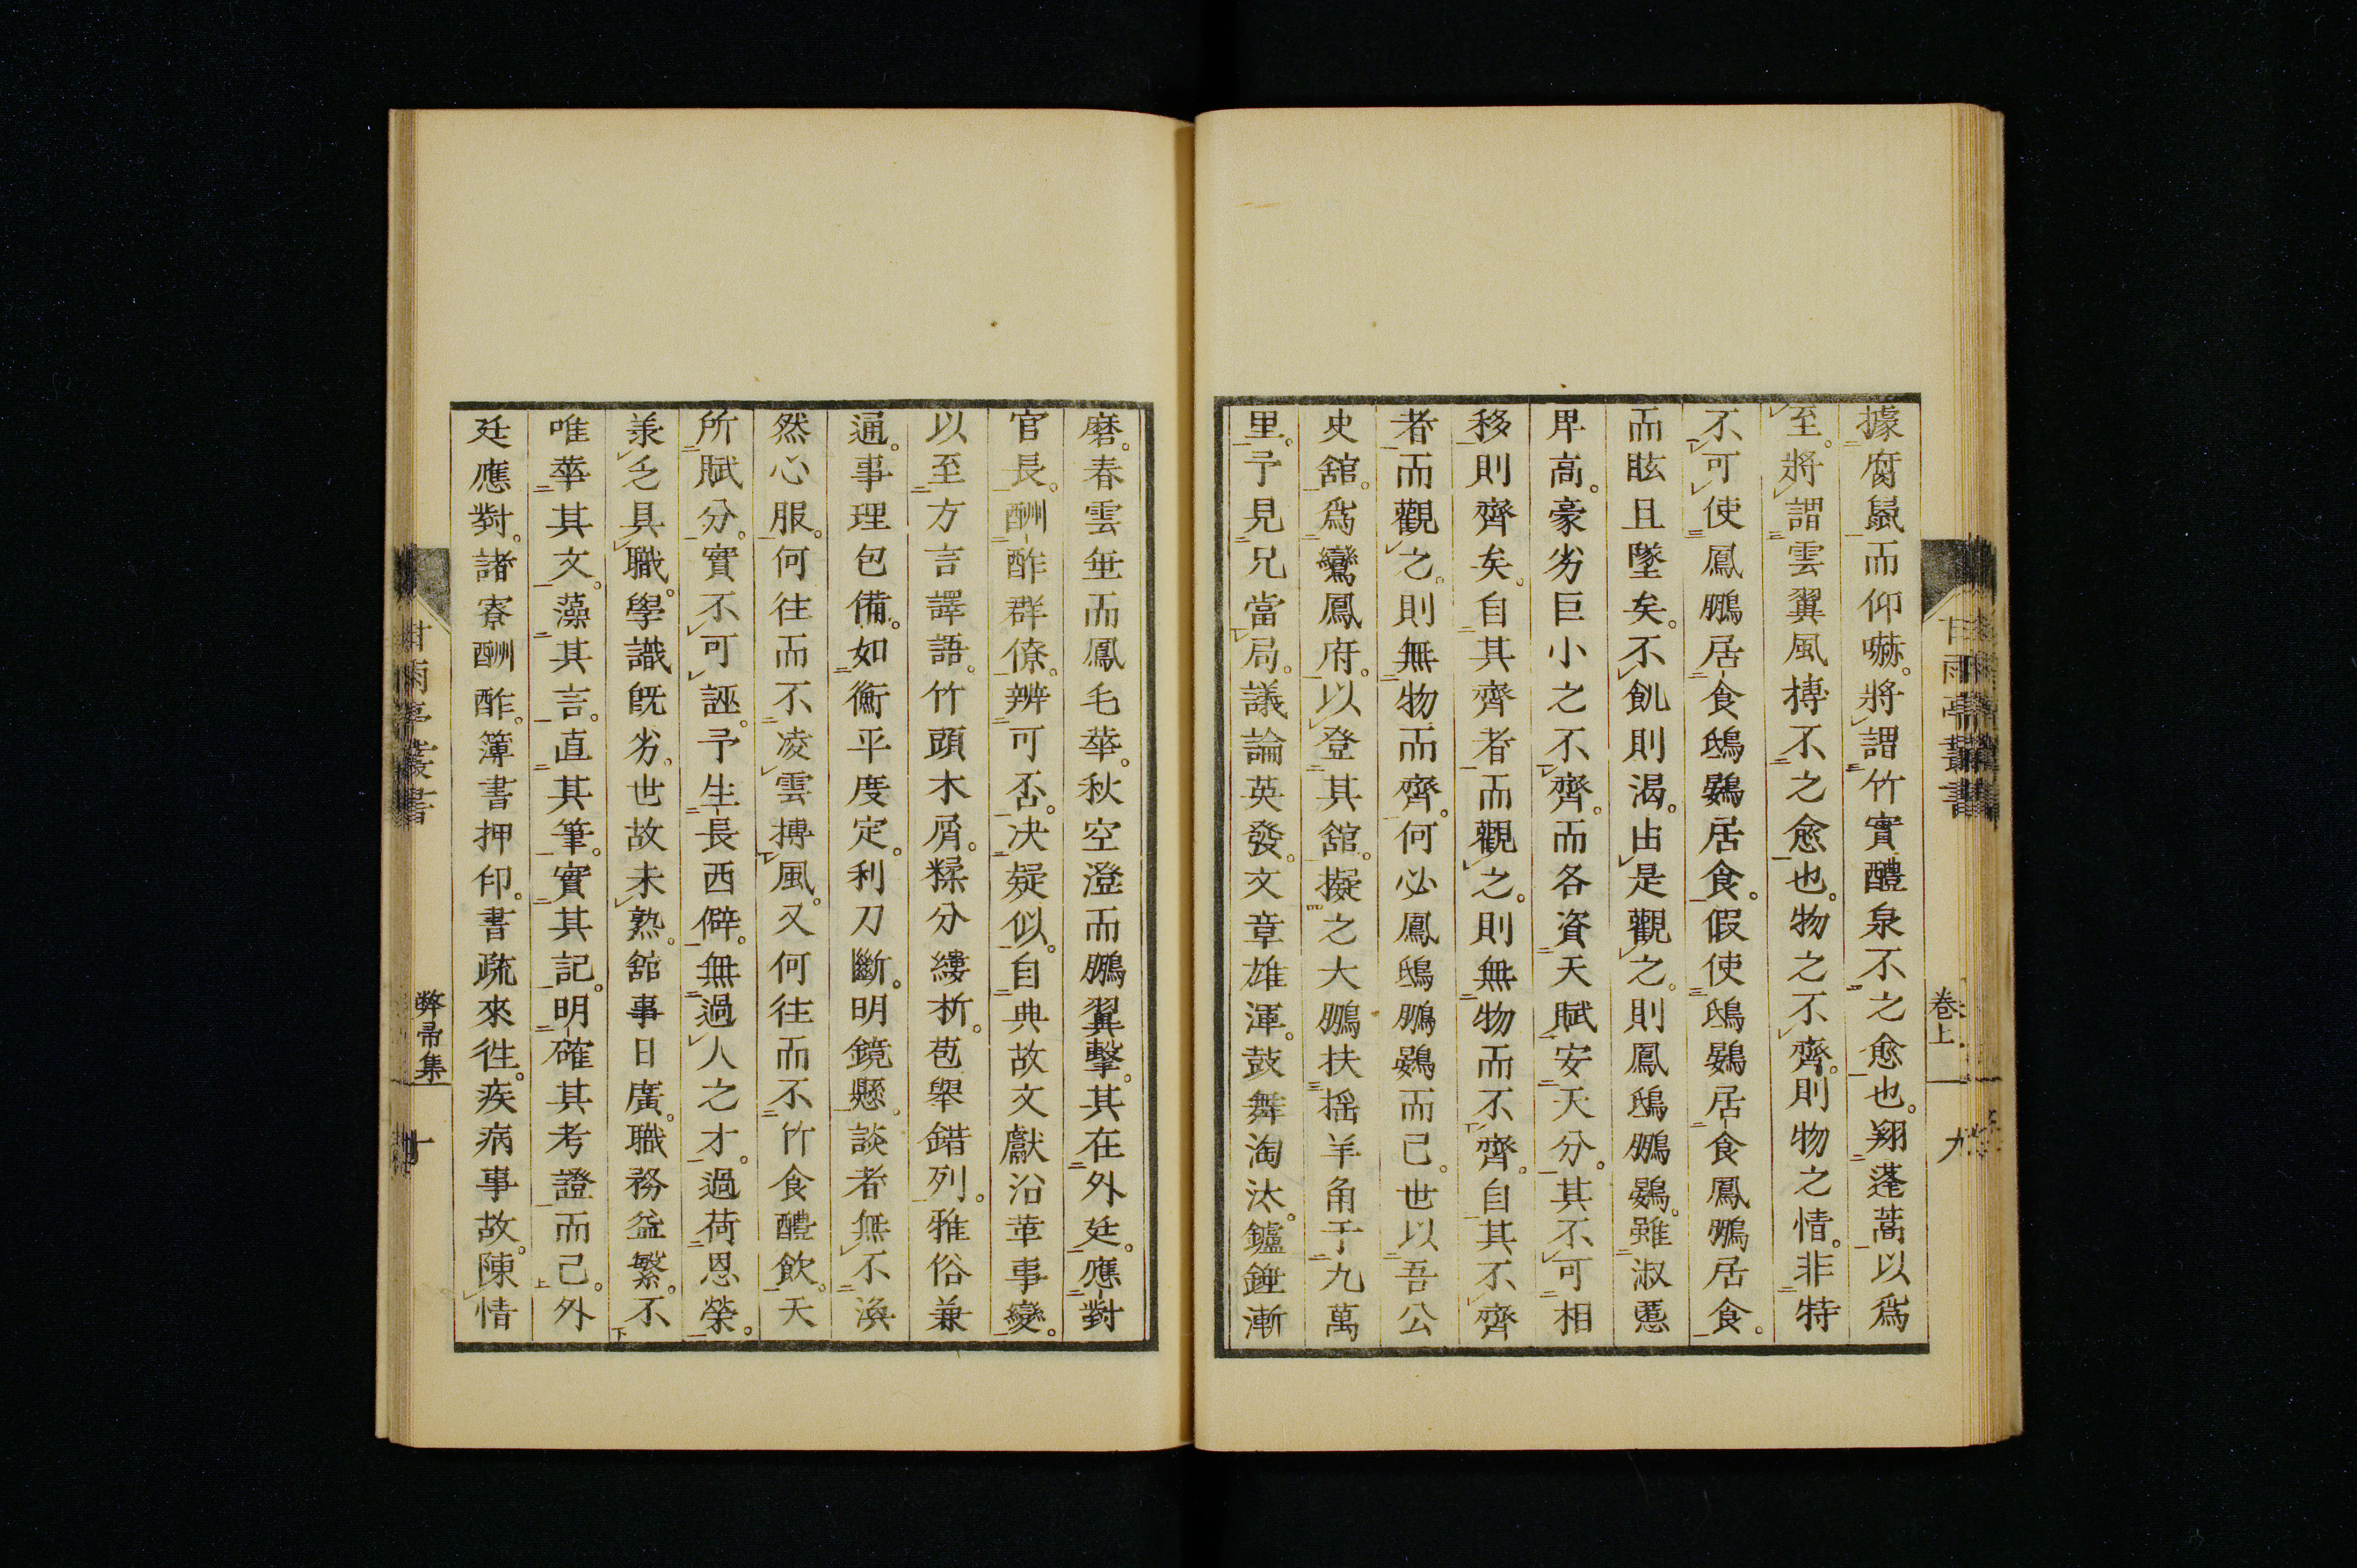 據腐鼠而仰嚇。將謂竹實醴泉不之愈也。翔蓬蒿以爲
至。將謂雲翼風摶不之愈也。物之不齊。則物之情。非特
不可使鳳鵬居食鴟鷃居食。假使鴟鷃居食鳳鵬居食。
而眩且墜矣。不飢則渴。由是觀之。則鳳鴟鵬鷃。雖淑慝
卑高。豪劣巨小之不齊。而各資天賦安天分。其不可相
移則齊矣。自其齊者而觀之。則無物而不齊。自其不齊
者而觀之。則無物而齊。何必鳳鴟鵬鷃而已。世以吾公
史舘。爲鸞鳳府。以登其舘。擬之大鵬扶搖羊角于九萬
里。予見兄當局。議論英發。文章雄渾。鼓舞淘汰。鑪錘漸
甘雨亭叢書
卷上
九
磨。春雲垂而鳳毛華。秋空澄而鵬翼擊。其在外廷。應對
官長。酬酢群僚。辨可否。决疑似。自典故文獻沿革事變。
以至方言譯語。竹頭木屑。糅分縷析。苞舉錯列。雅俗兼
通。事理包備。如衡平度定。利刀斷。明鏡懸。談者無不渙
然心服。何往而不凌雲摶風。又何往而不竹食醴飲。天
所賦分。實不可誣。予生長西僻。無過人之才。過荷恩榮。
羕乏具職。學識既劣。世故未熟。舘事日廣。職務益繁。不
唯華其文。藻其言。直其筆。實其記。明確其考證而已。外
廷應對。諸寮酬酢。簿書押印。書疏來徃。疾病事故。陳情
甘雨亭叢書
弊帚集
十